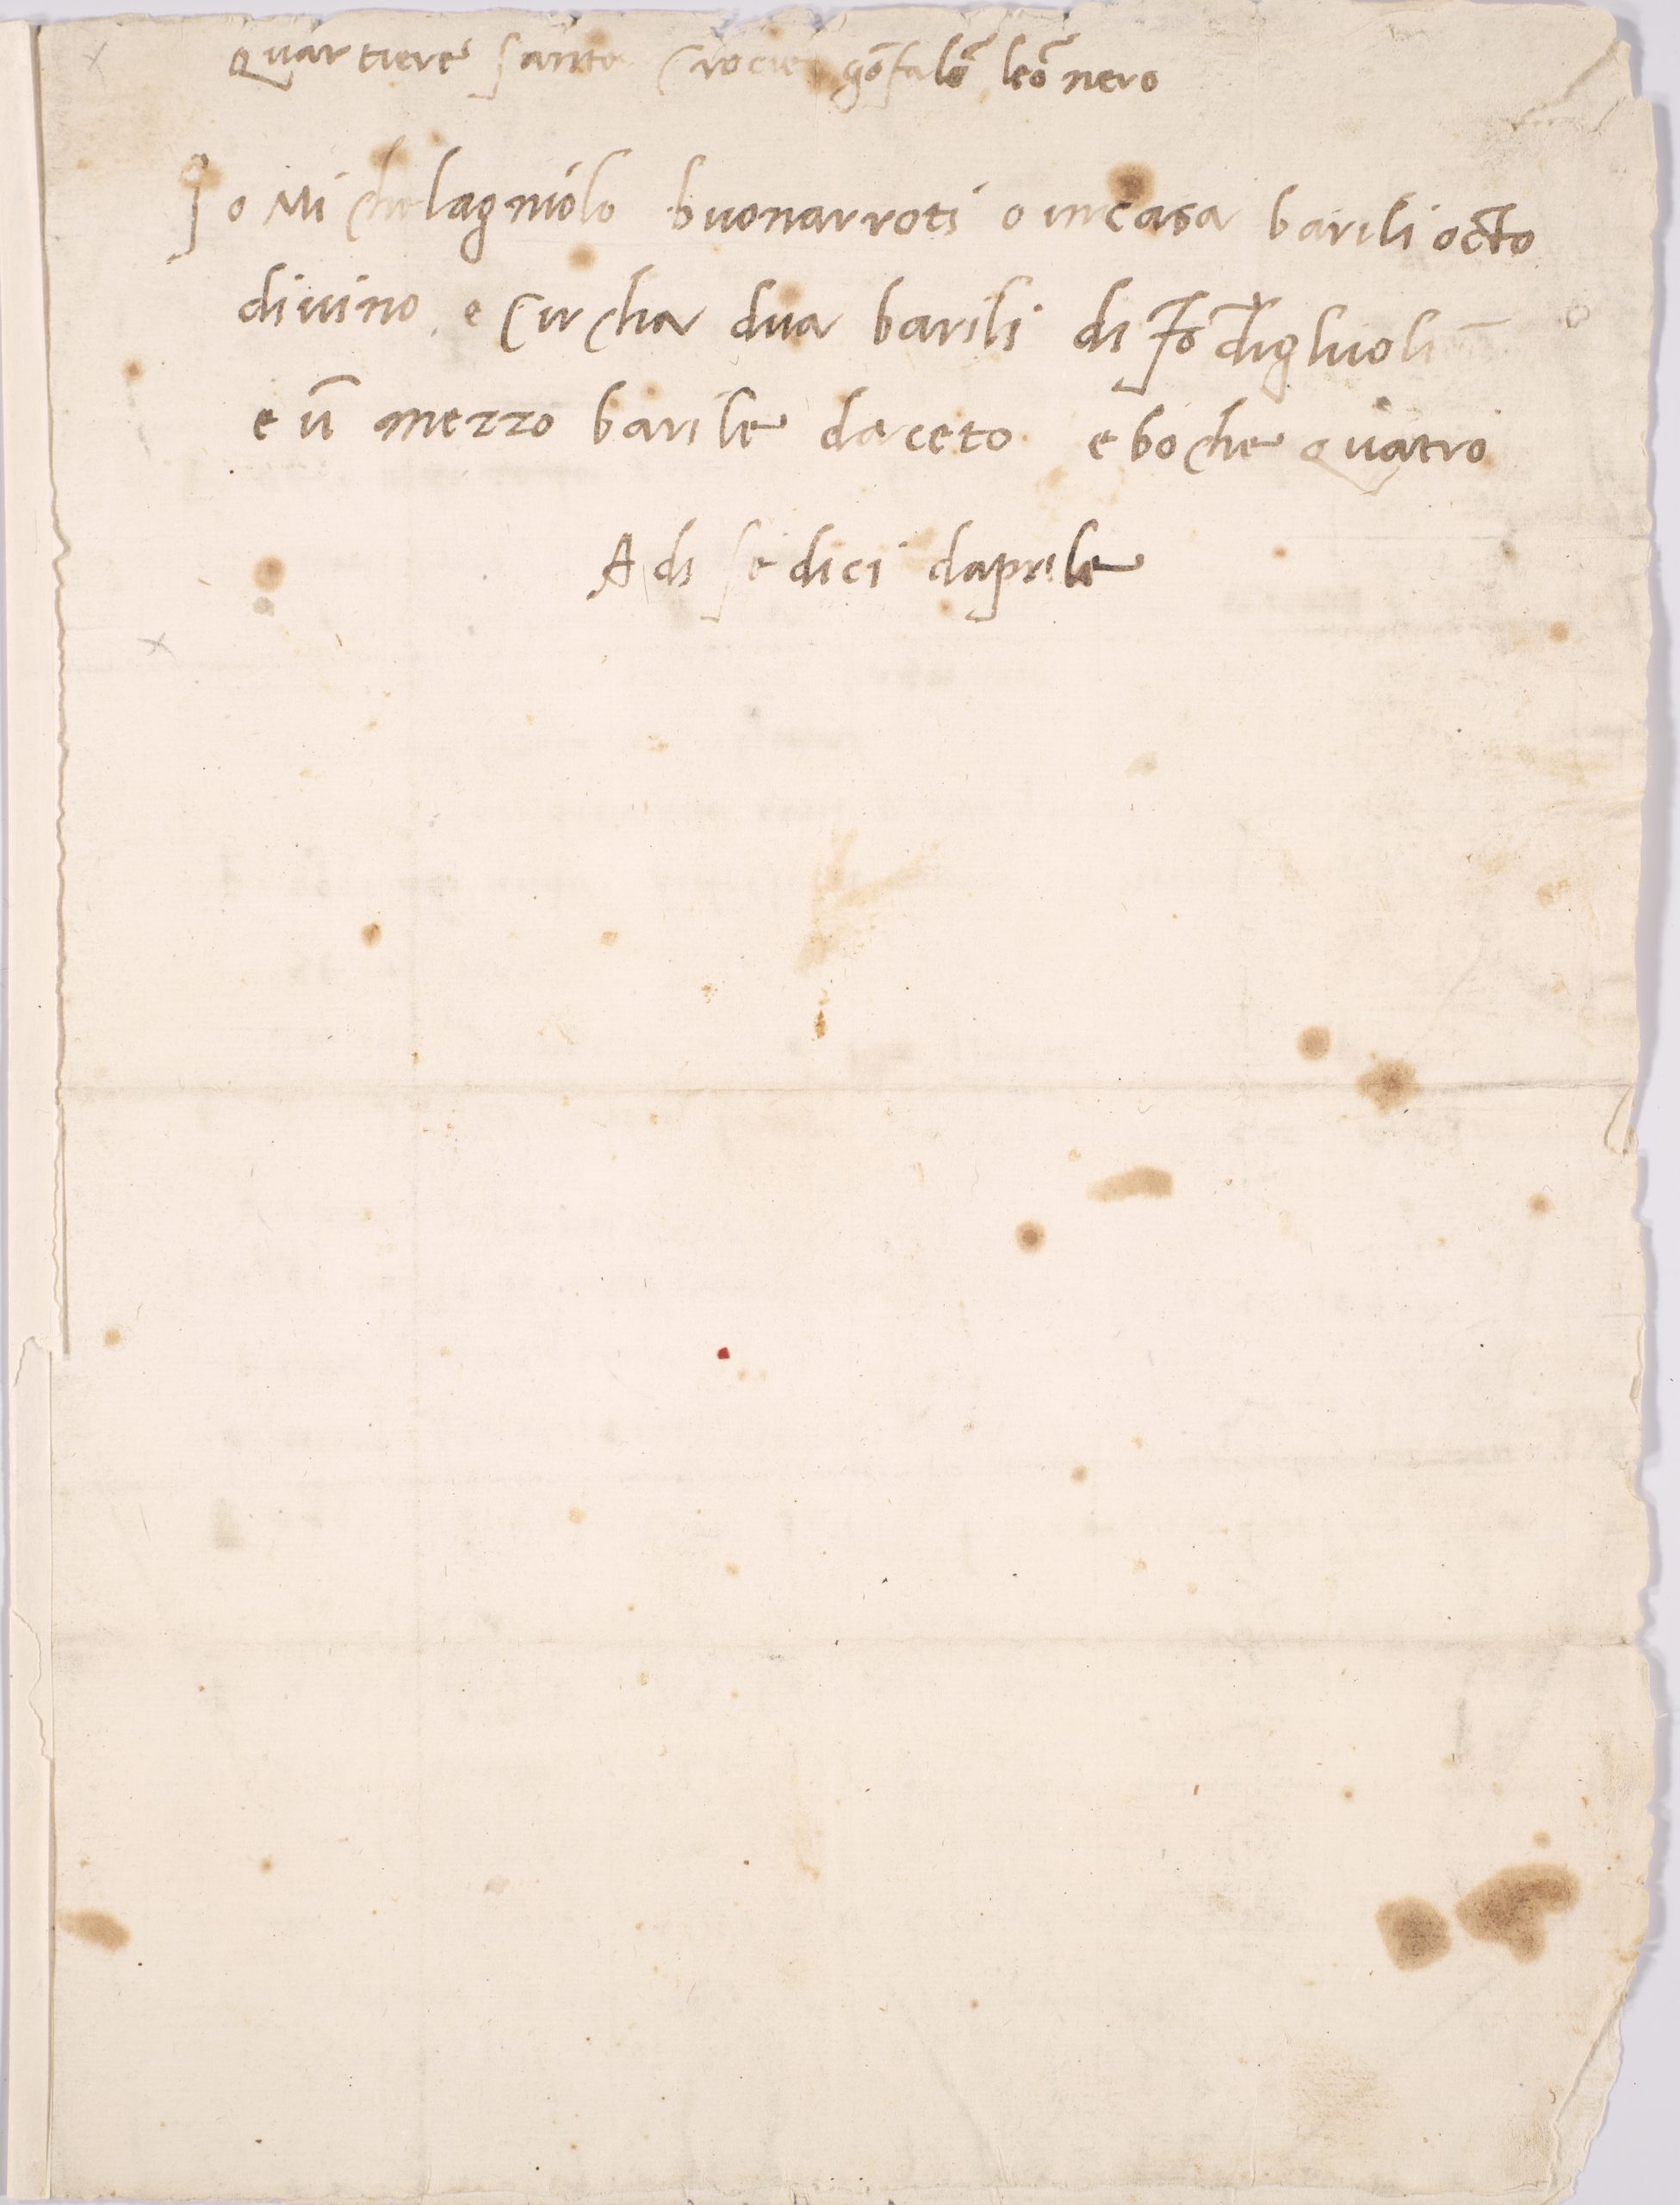 Quartiere santa Crocie gōfalō leō nero
Io Michelagniolo buonarroti o in casa barili octo
di vino e circha dua barili di fagiuoli
e ū mezzo barile daceto e boche quatro
A dì sedici daprile